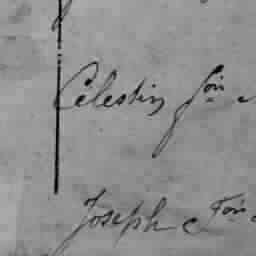 Celestin fon
Joseph Fon